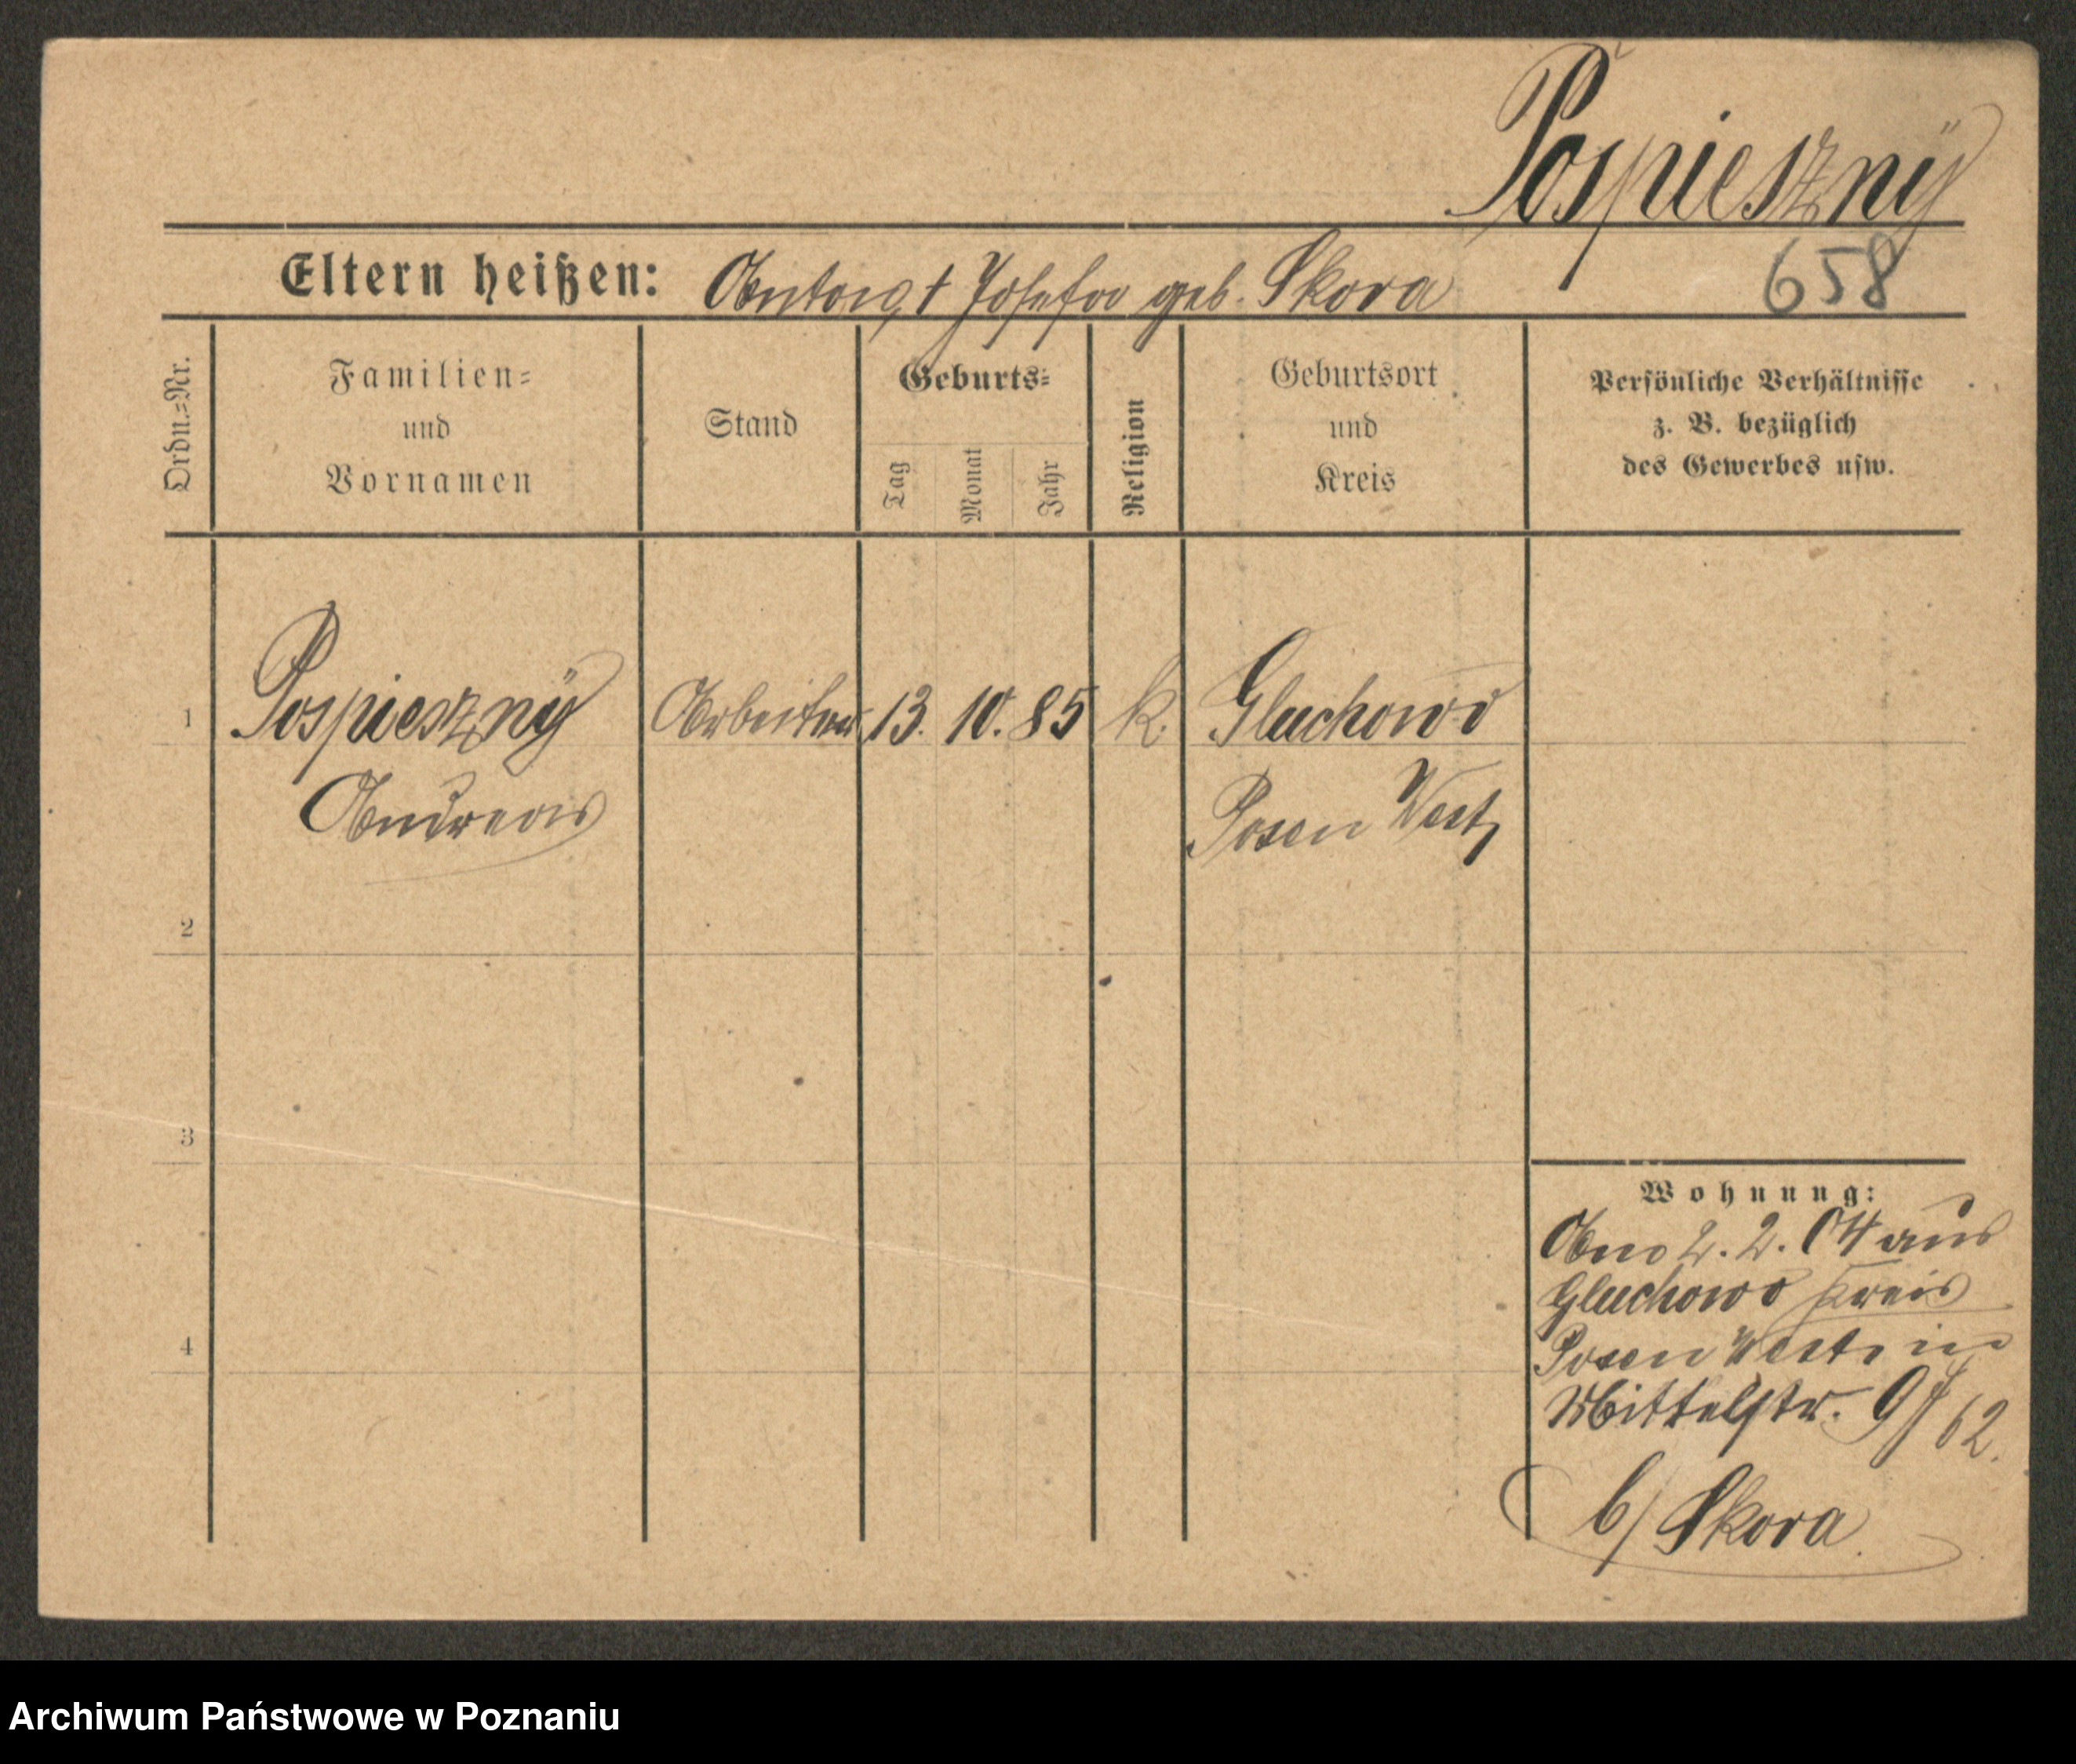 Pospieszny
Eltern heißen: Anton, † Josefa geb. Skora
658
Ordn.=Nr.
Familien=
und
Vornamen
Stand
Geburts=
Tag
Monat
Jahr
Religion
Geburtsort
und
Kreis
Persönliche Verhältnisse
z. B. bezüglich
des Gewerbes usw.
1 Pospieszny Arbeiter 13. 10. 85 k. Gluchowo
Andreas Posen West,
2
3
4
Wohnung:
2. 2. 04 aus
Gluchowo Kreis
Posen West. in
Mittelstr. 9/ 62.
b/ Skora
Archiwum Państwowe w Poznaniu